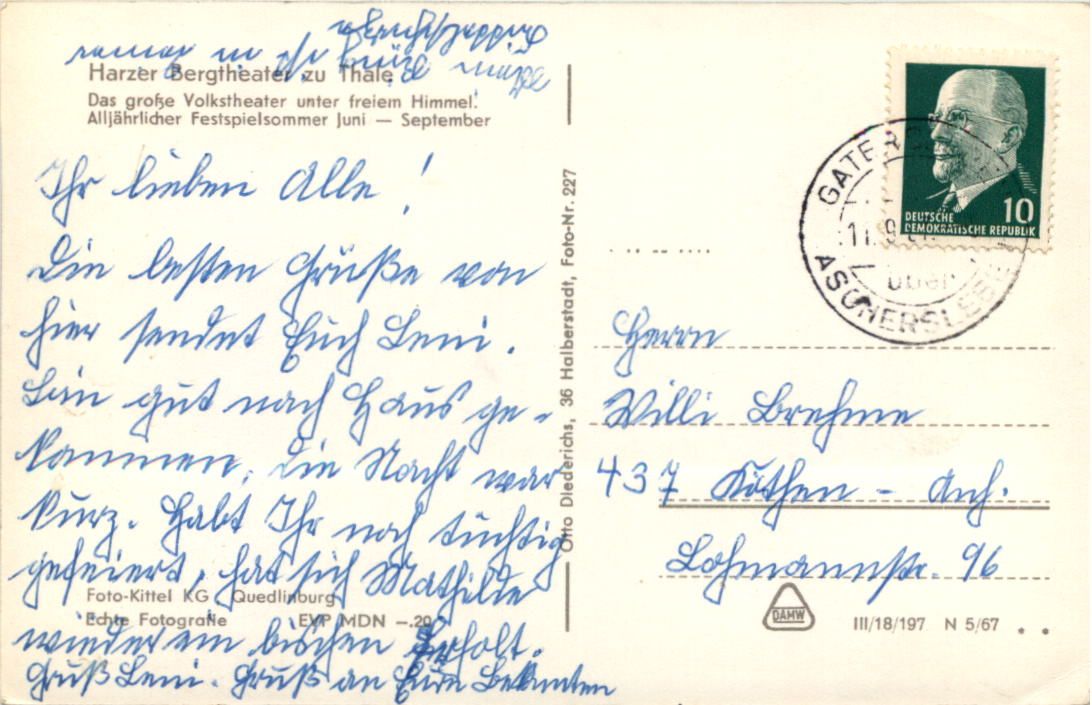 Harzer Bergtheater zu Thale
Das große Volkstheater unter freiem Himmel.
Alljährlicher Festspielsommer Juni — September
Ihr lieben Alle!
Die besten Grüße von
hier sendet Euch Leni.
Bin gut nach Haus ge-
kommen, die Nacht war
kurz. Habt Ihr noch tüchtig
gefeiert, hat sich Mathilde
wieder ein bischen erholt.
Gruß Leni. Gruß an Eure Bekannten
Foto-Kittel KG Quedlinburg
Echte Fotografie EVP MDN –.20
Otto Diederichs, 36 Halberstadt, Foto-Nr. 227
DEUTSCHE
DEMOKRATISCHE REPUBLIK
10
über
ASCHERSLEBE
Herrn
Willi Brehme
437 Köthen - Anh.
Lohmannstr. 96
DAMW
III/18/197 N 5/67